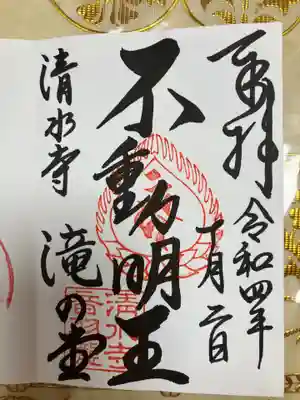 奉拝
令和四年
月二日
不動明王
清水寺
滝の堂
清水寺